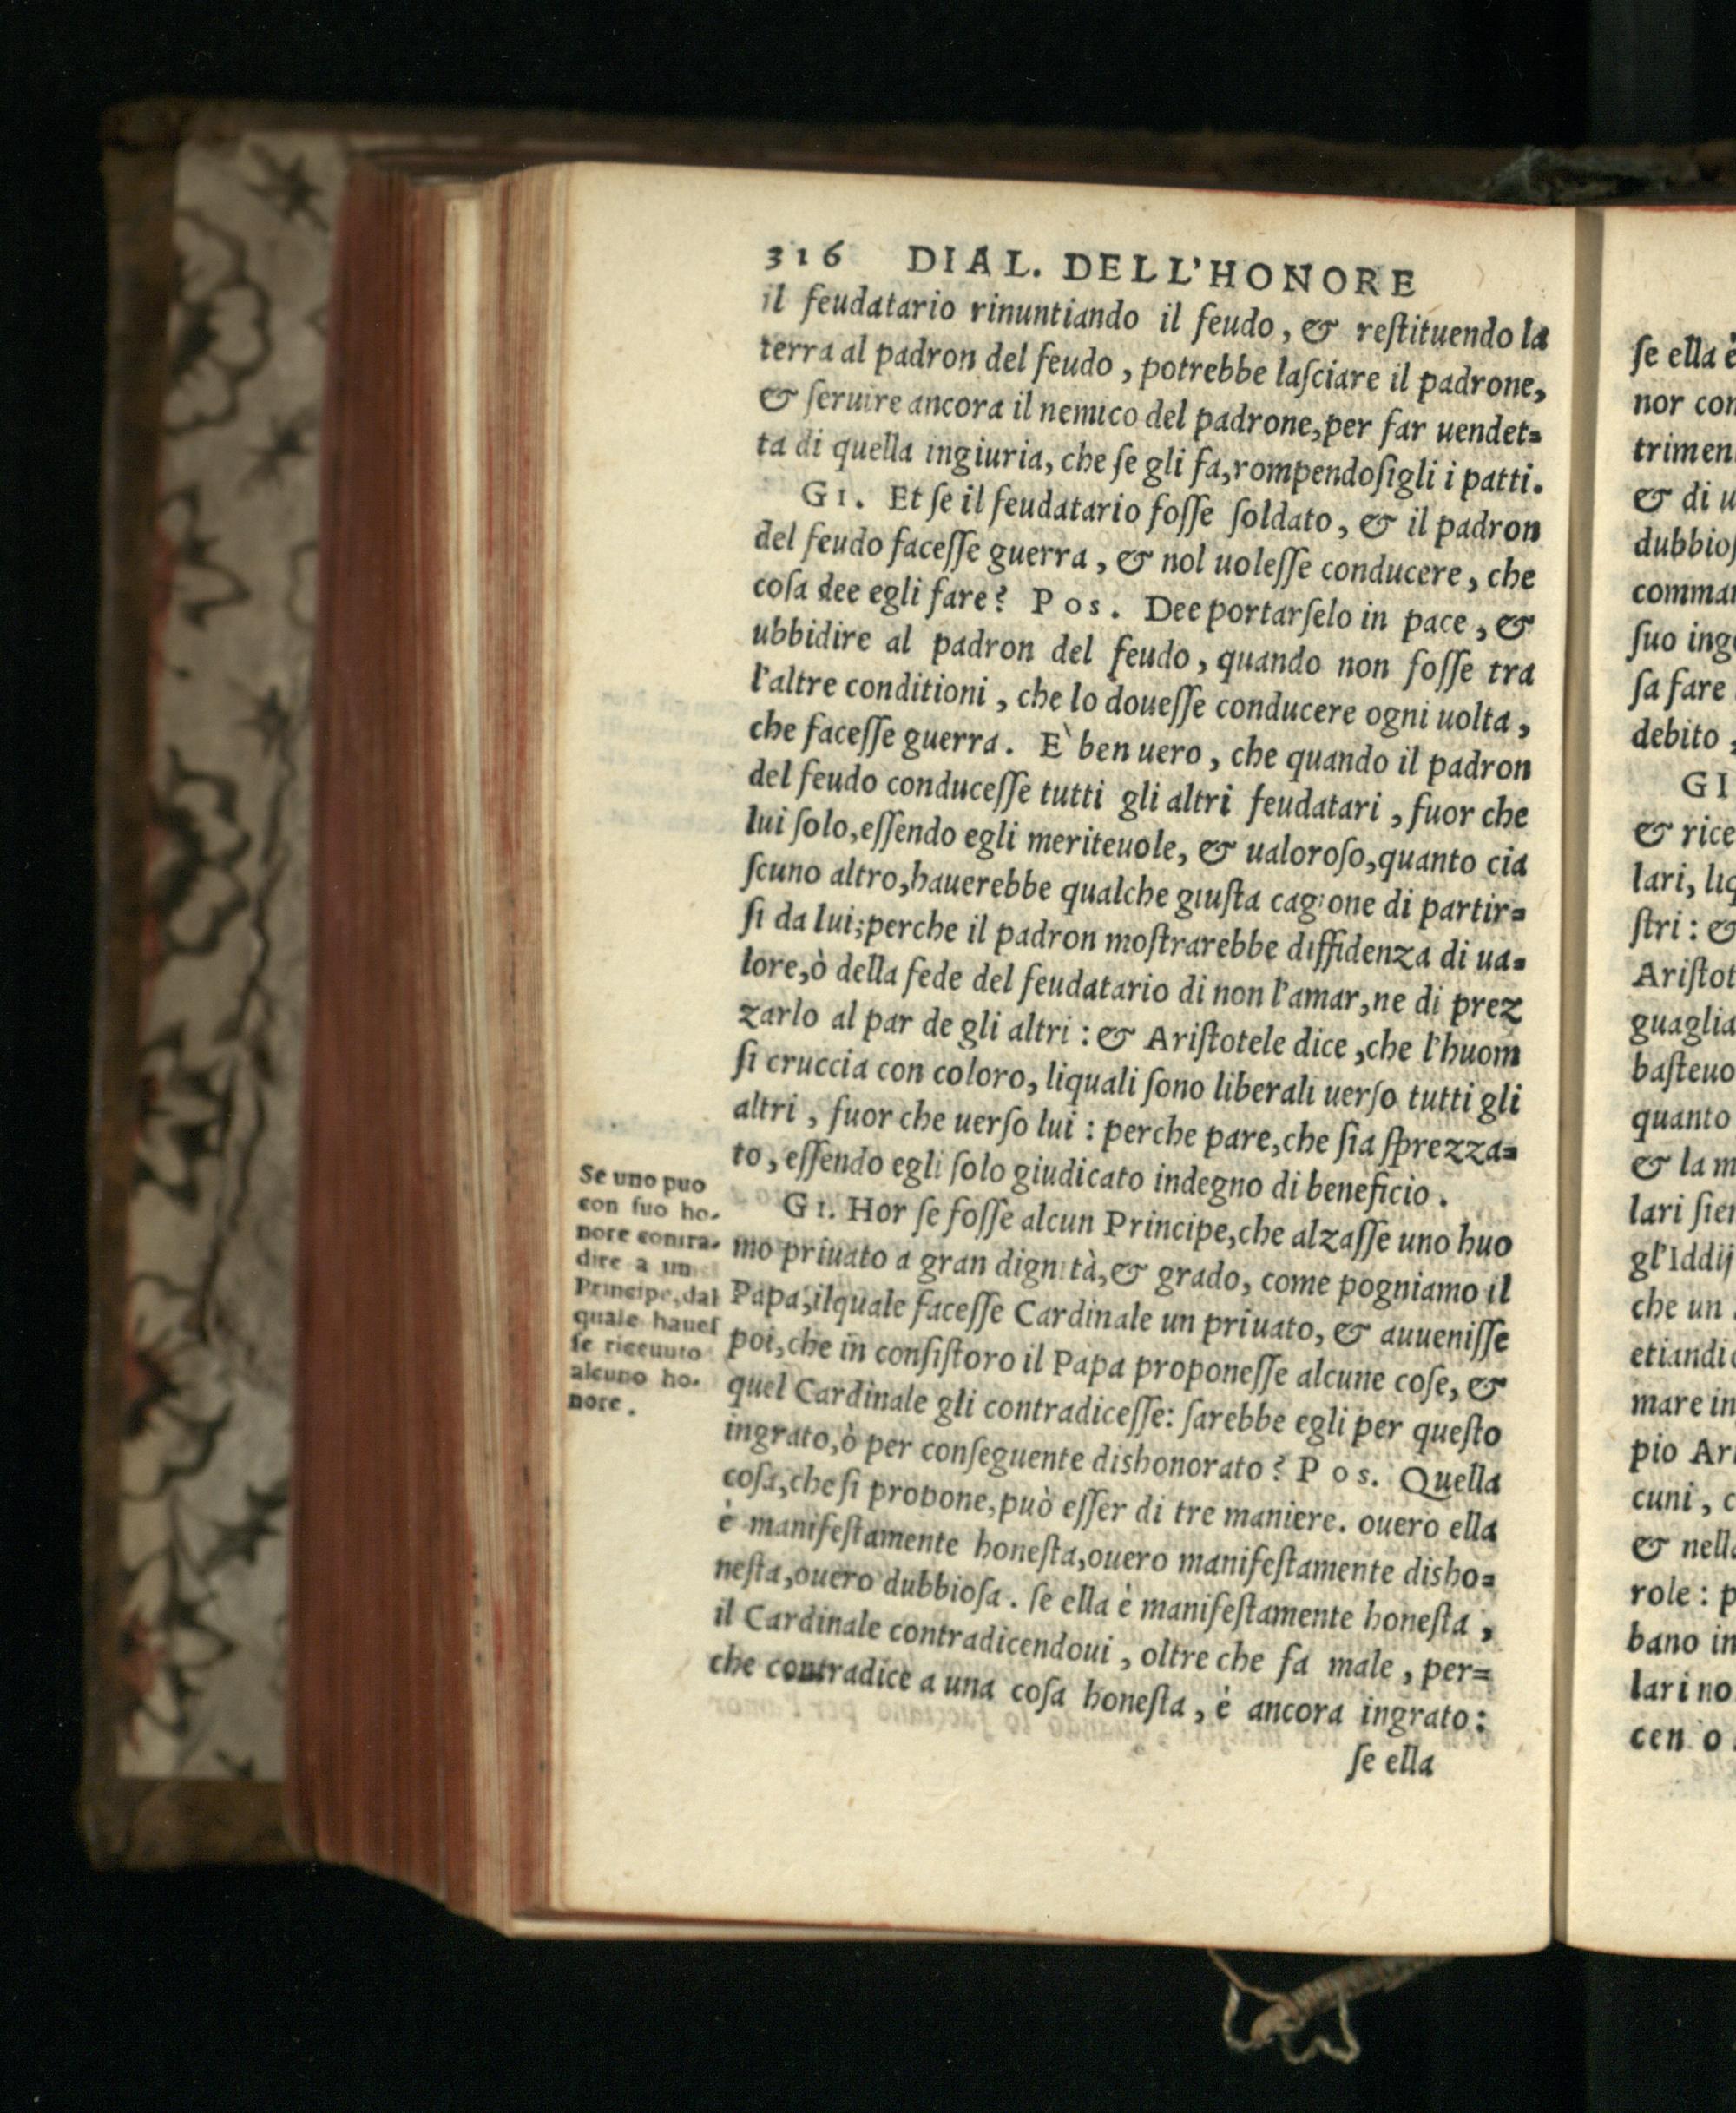 316 DIAL. DELL'HONORE
il feudatario rinuntiando il feudo, & reſtituendo la
terra al padron del feudo, potrebbe laſciare il padrone,
& ſeruire ancora il nemico del padrone, per far uendet=
ta di quella ingiuria, che ſe gli fa, rompendoſigli i patti.
GI. Et ſe il feudatario foſſe ſoldato, & il padron
del feudo faceſſe guerra, & nol uoleſſe conducere, che
coſa dee egli fare? POS. Dee portarſelo in pace, &
ubbidire al padron del feudo, quando non foſſe tra
l'altre conditioni, che lo doueſſe conducere ogni uolta,
che faceſſe guerra. E` ben uero, che quando il padron
del feudo conduceſſe tutti gli altri feudatari, fuor che
lui ſolo, eſſendo egli meriteuole, & ualoroſo, quanto cia
ſcuno altro, hauerebbe qualche giuſta cagione di partir=
ſi da lui; perche il padron moſtrarebbe diffidenza di ua=
lore, ò della fede del feudatario di non l'amar, ne di prez
zarlo al par de gli altri: & Ariſtotele dice, che l'huom
ſi cruccia con coloro, liquali ſono liberali uerſo tutti gli
altri, fuor che uerſo lui: perche pare, che ſia ſprezza=
to, eſſendo egli ſolo giudicato indegno di beneficio.
GI. Hor ſe foſſe alcun Principe, che alzaſſe uno huo
mo priuato a gran dignità, & grado, come pogniamo il
Papa, ilquale faceſſe Cardinale un priuato, & auueniſſe
poi, che in conſiſtoro il Papa proponeſſe alcune coſe, &
quel Cardinale gli contradiceſſe: ſarebbe egli per queſto
ingrato, ò per conſeguente dishonorato? POS. Quella
coſa, che ſi propone, può eſſer di tre maniere. ouero ella
è manifeſtamente honeſta, ouero manifeſtamente disho=
neſta, ouero dubbioſa. ſe ella è manifeſtamente honeſta,
il Cardinale contradicendoui, oltre che fa male, per=
che contradice a una coſa honeſta, è ancora ingrato:
ſe ella
Se uno puo
con ſuo ho-
nore contra-
dire a un
Principe, dal
quale haueſ
ſe riceuuto
alcuno ho-
nore.
ſe ella è
nor con
trimen
& di u
dubbioſ
comman
ſuo ing
ſa fare
debito,
GI
& rice
lari, liq
ſtri: &
Ariſtot
guaglia
baſteuo
quanto
& la m
lari ſien
gl'Iddij
che un
etiandi
mare in
pio Ar
cuni, c
& nella
role: p
bano in
lari no
cen o